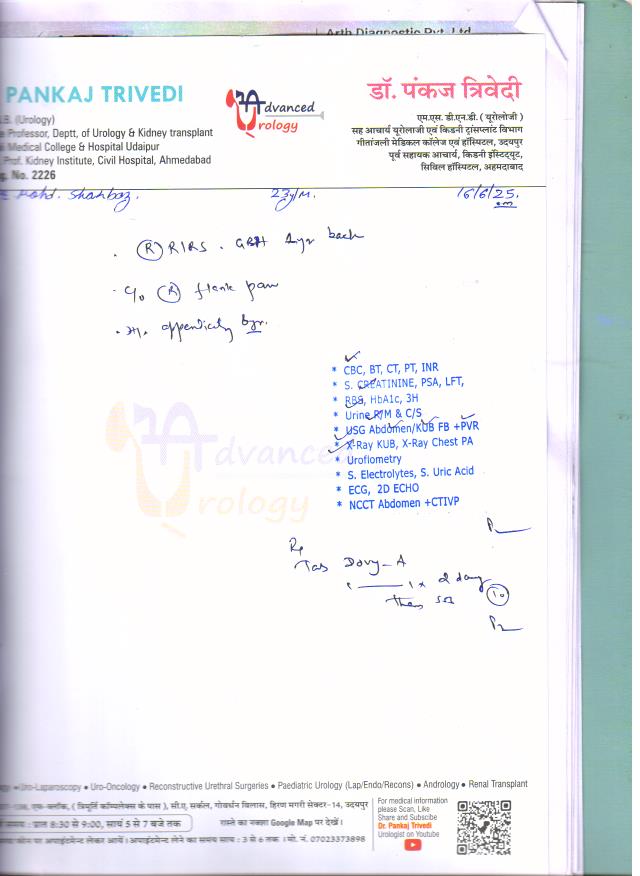 Arth Diagnostic Pvt. Ltd.
PANKAJ TRIVEDI
.B. (Urology)
e Professor, Deptt. of Urology & Kidney transplant
i Medical College & Hospital Udaipur
Prof. Kidney Institute, Civil Hospital, Ahmedabad
g. No. 2226
Advanced
Urology
डॉ. पंकज त्रिवेदी
एम.एस. डी.एन.बी. ( यूरोलोजी )
सह आचार्य यूरोलोजी एवं किडनी ट्रांसप्लांट विभाग
गीतांजली मेडिकल कॉलेज एवं हॉस्पिटल, उदयपुर
पूर्व सहायक आचार्य, किडनी इंस्टिट्यूट,
सिविल हॉस्पिटल, अहमदाबाद
Mohd. Shahbaz. 23y/M. 16/6/25.
(R) RIRS. GBH 1yr back
c/o (R) flank pain
* CBC, BT, CT, PT, INR
* S. CREATININE, PSA, LFT,
* RBS, HbA1c, 3H
* Urine R/M & C/S
* USG Abdomen/KUB FB +PVR
* X-Ray KUB, X-Ray Chest PA
* Uroflometry
* S. Electrolytes, S. Uric Acid
* ECG, 2D ECHO
* NCCT Abdomen +CTIVP
Advanced
Urology
Rx
Tab
1 —— 1 x 2 day
then SOS (10)
• Uro-Laparoscopy • Uro-Oncology • Reconstructive Urethral Surgeries • Paediatric Urology (Lap/Endo/Recons) • Andrology • Renal Transplant
एफ-ब्लॉक, ( त्रिमूर्ति कॉम्पलेक्स के पास ), सी.ए. सर्कल, गोवर्धन विलास, हिरण मगरी सेक्टर-14, उदयपुर
समय : प्रातः 8:30 से 9:00, सायं 5 से 7 बजे तक
रास्ते का नक्शा Google Map पर देखें।
फोन पर अपाईंटमेन्ट लेकर आयें। अपाईंटमेन्ट लेने का समय सायं : 3 से 6 तक । मो. नं. 07023373898
For medical information
please Scan, Like
Share and Subscibe
Dr. Pankaj Trivedi
Urologist on Youtube